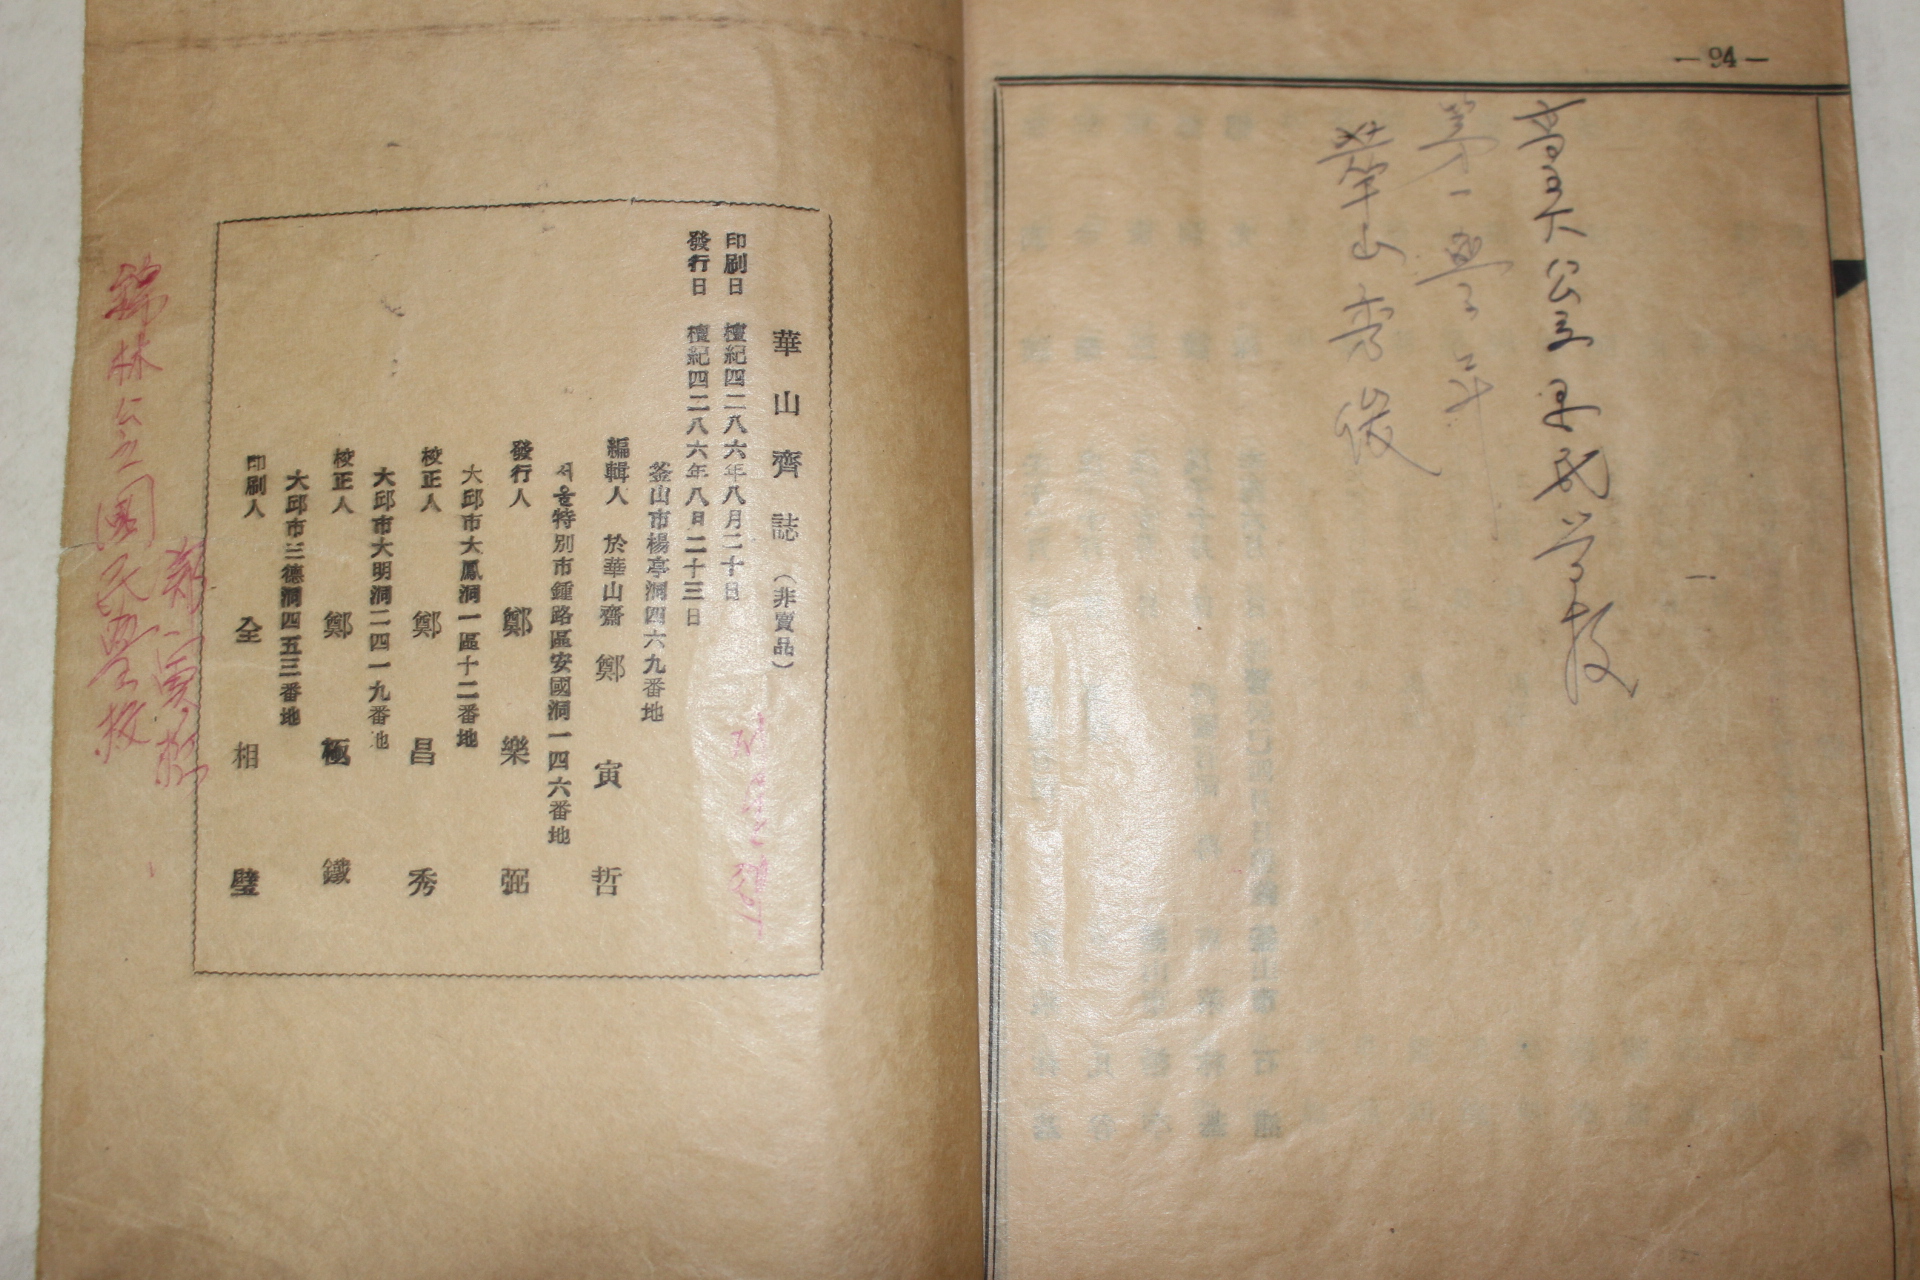 —94—
公立국民学校
第一學年
華山秀俊
華山齊誌（非賣品）
印刷日 檀紀四二八六年八月二十日
發行日 檀紀四二八六年八日二十三日
釜山市楊亭洞四六九番地
編輯人 於華山齋 鄭寅哲
서울特別市鍾路區安國洞一四六番地
發行人 鄭樂弼
大邱市大鳳洞一區十二番地
校正人 鄭昌秀
大邱市大明洞二四一九番地
校正人 鄭極鐵
大邱市三德洞四五三番地
印刷人 全相璧
林公立國民學校